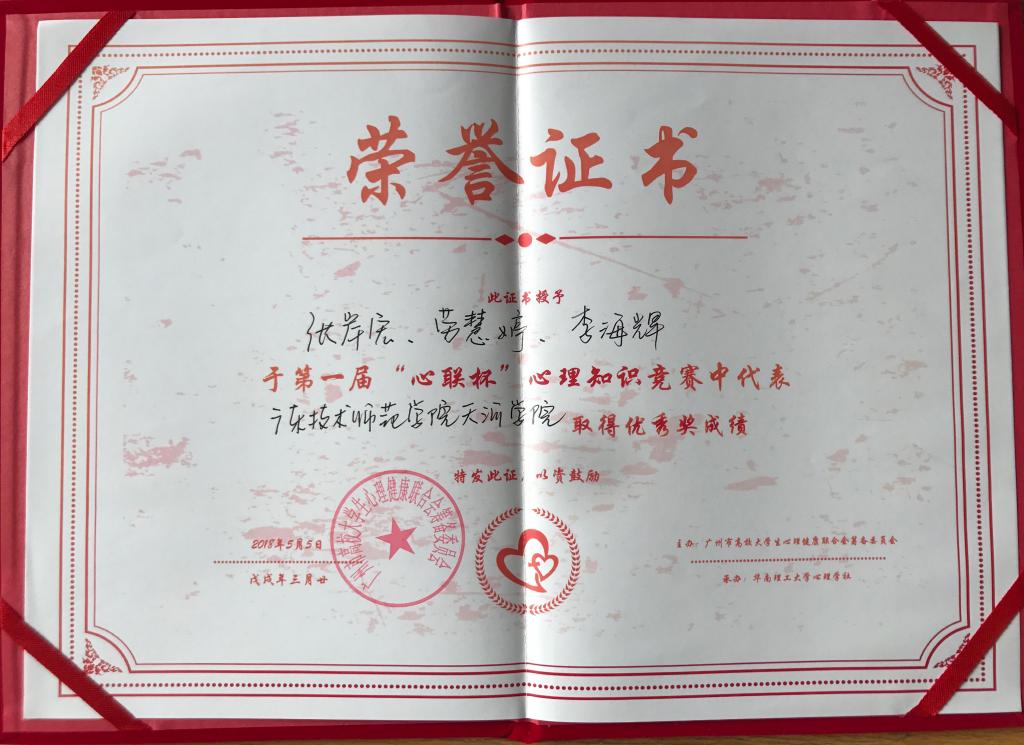 荣誉证书
此证书授予
张岸宏、劳慧婷、李海辉
于第一届“心联杯”心理知识竞赛中代表
广东技术师范学院天河学院取得优秀奖成绩
特发此证，以资鼓励
2018年5月5日
戊戌年三月廿
广州市高校大学生心理健康联合会筹备委员会
主办：广州市高校大学生心理健康联合会筹备委员会
承办：华南理工大学心理学社